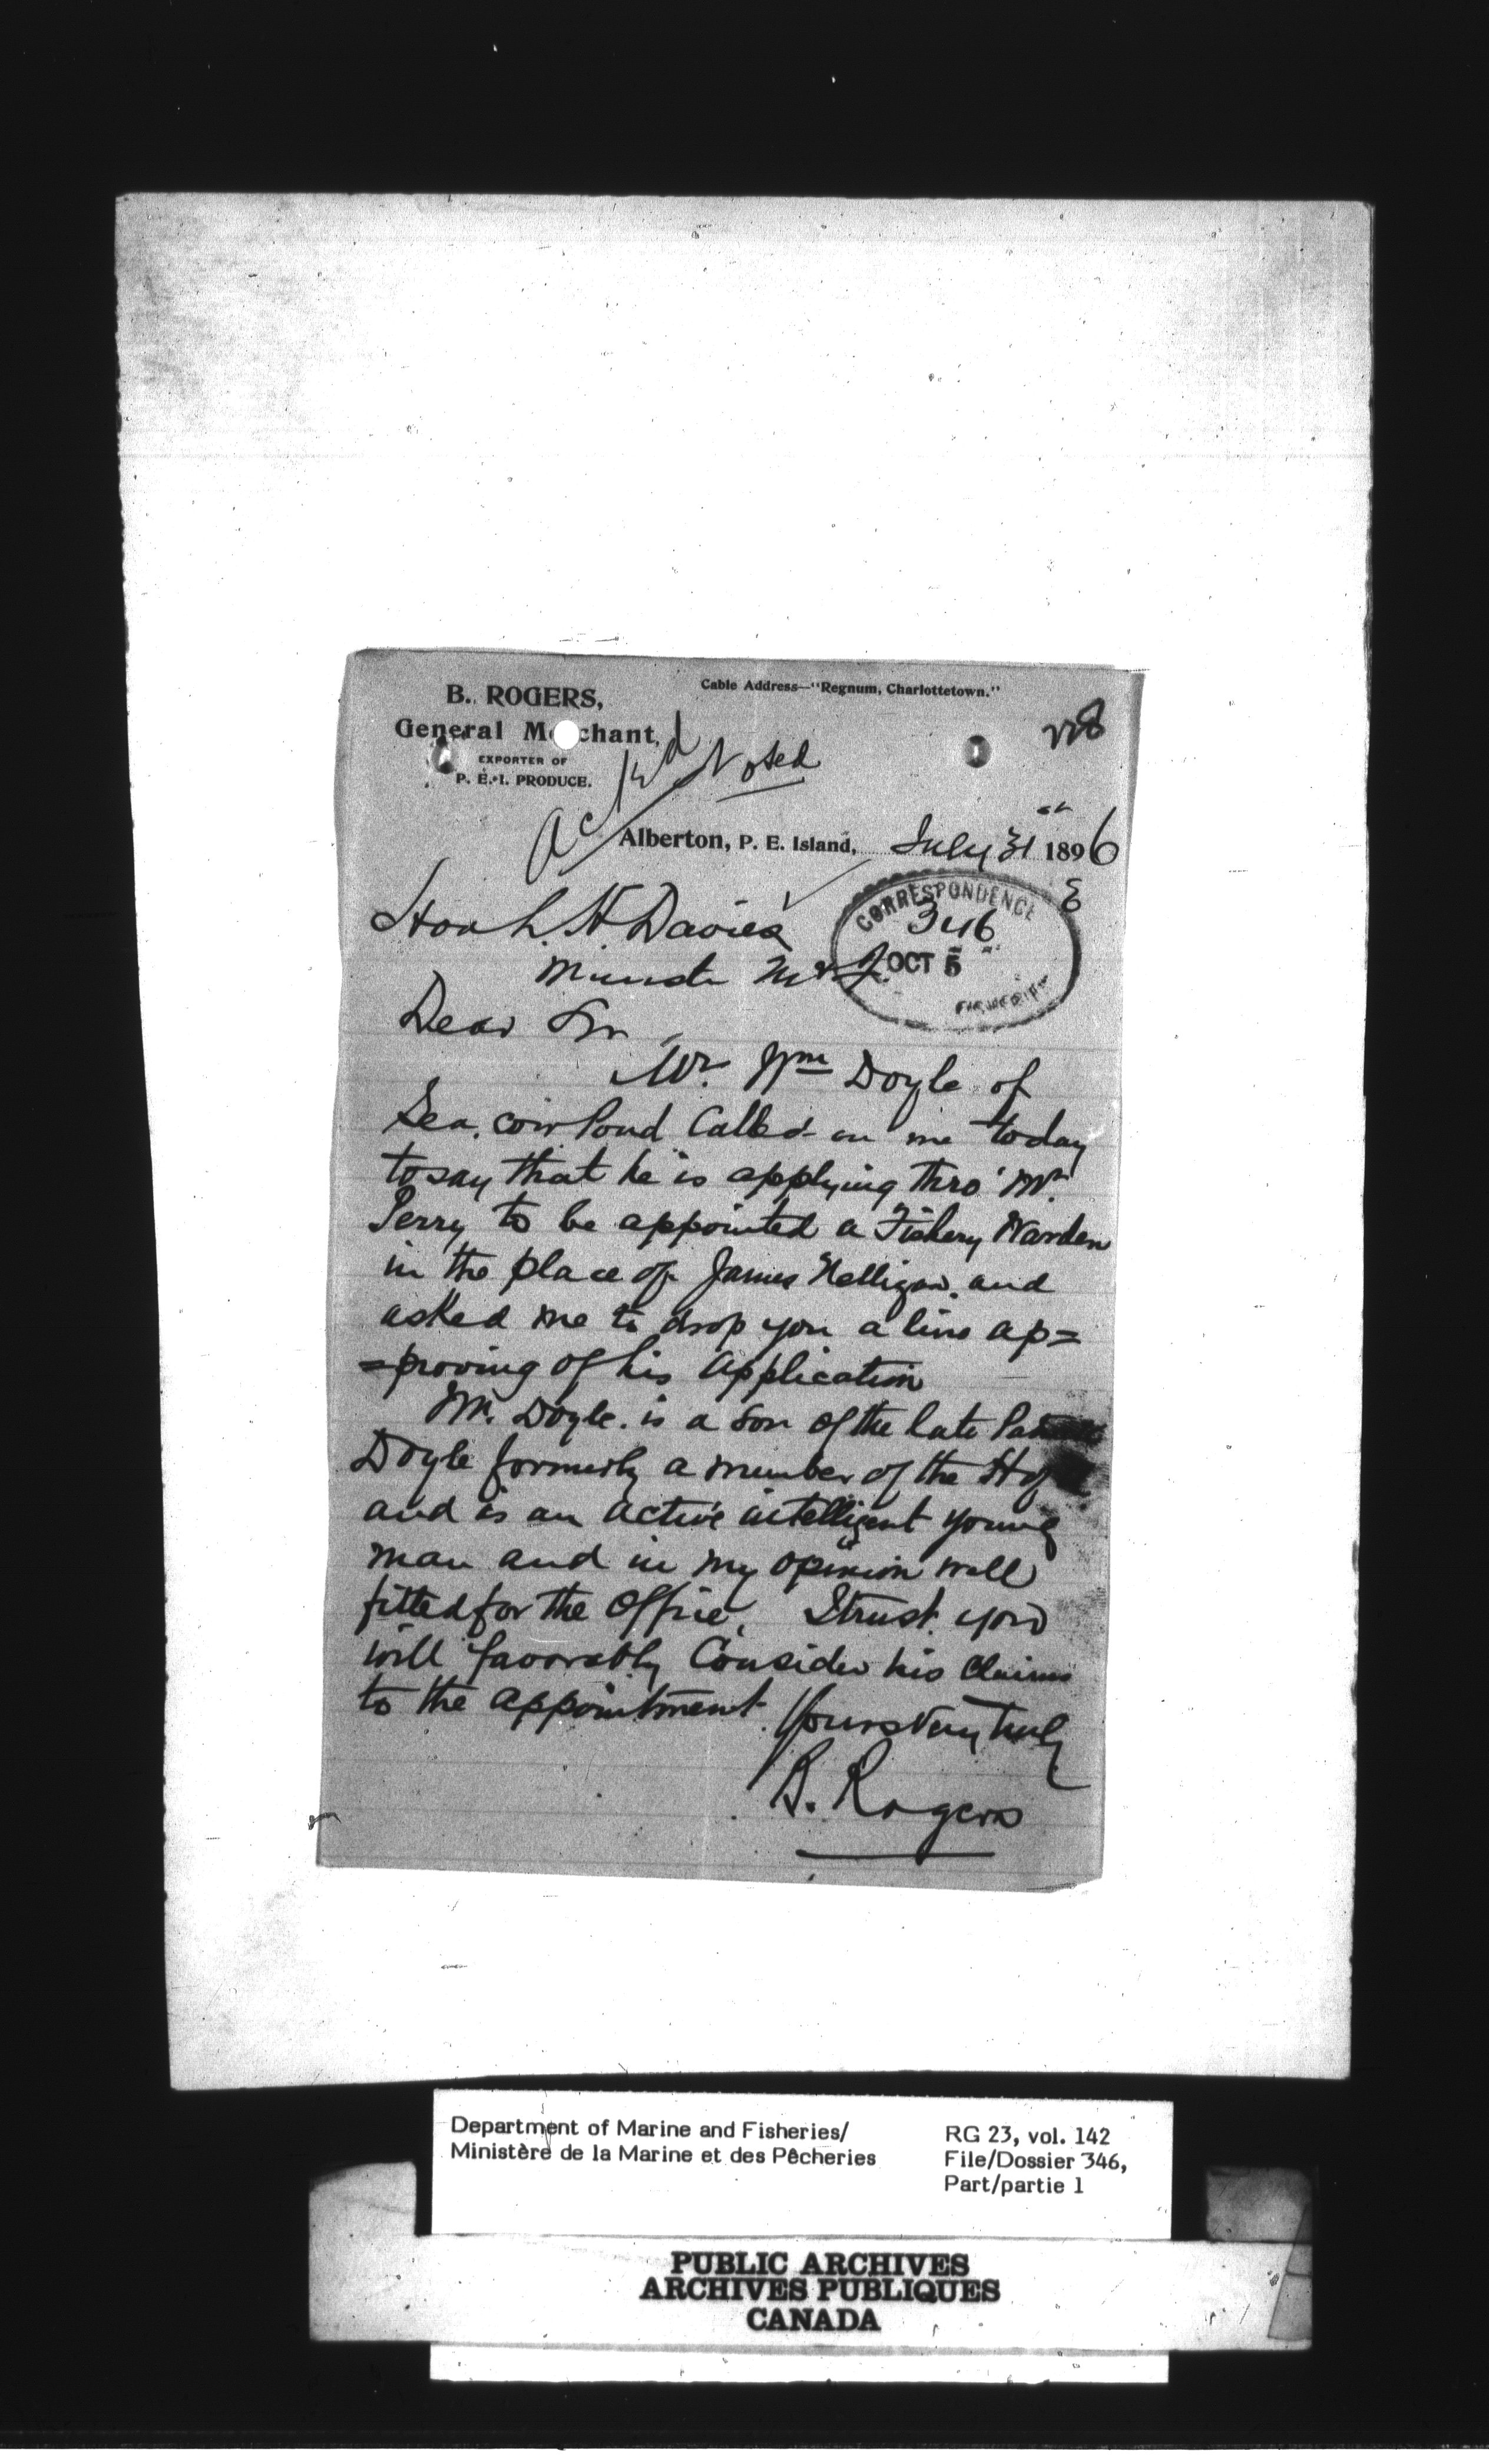 B. ROGERS,
General Merchant,
EXPORTER OF
P. E. I. PRODUCE.
Cable Address—"Regnum, Charlottetown."
228
Ack'd Noted
Alberton, P. E. Island, July 31st 1896
CORRESPONDENCE
346
OCT 5
FISHERIES
Hon L. H. Davies
Minister M & F.
Dear Sir,
Mr. Wm Doyle of
Sea. cow Pond Called on me today
to say that he is applying thro' Mr.
Perry to be appointed a Fishery Warden
in the place of James Nelligan. and
asked me to drop you a line ap=
=proving of his application
Mr. Doyle. is a son of the late
Doyle formerly a member of the
and is an active intelligent young
man and in my opinion well
fitted for the office, I trust you
will favorably Consider his claims
to the appointment.
Yours Very truly
B. Rogers
Department of Marine and Fisheries/
Ministère de la Marine et des Pêcheries
RG 23, vol. 142
File/Dossier 346,
Part/partie 1
PUBLIC ARCHIVES
ARCHIVES PUBLIQUES
CANADA